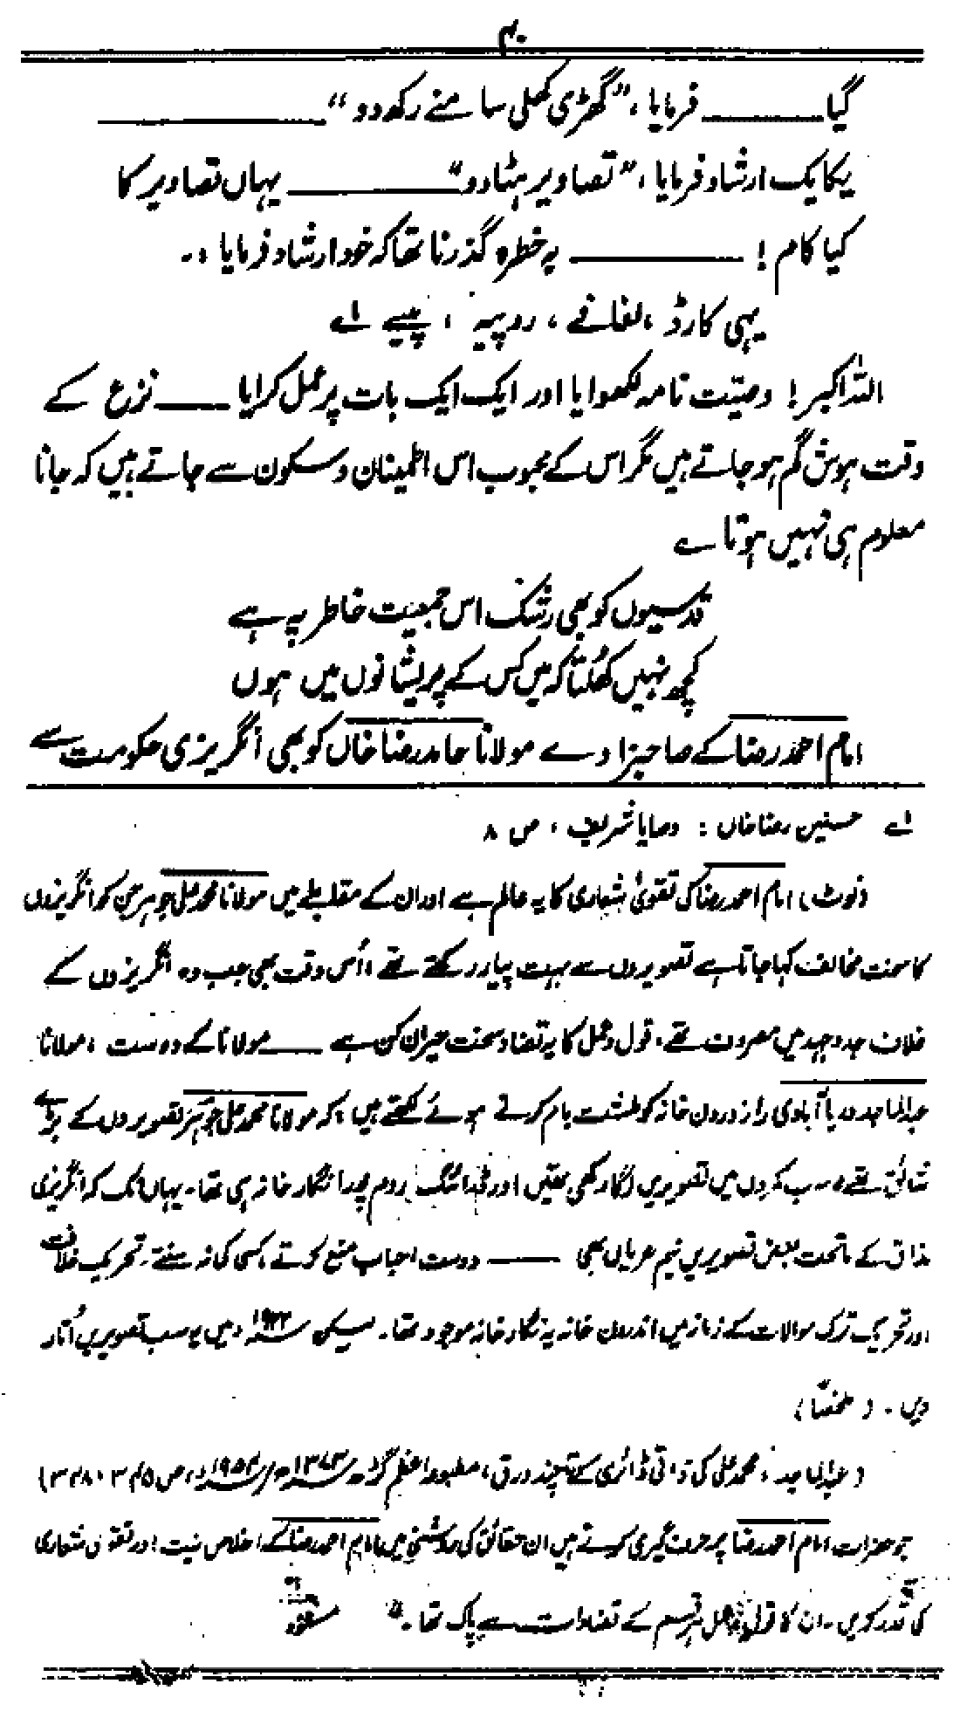 ۴۰
گیا ــــــــ فرمایا، ”گھڑی کھلی سامنے رکھ دو“ ــــــــ
یکایک ارشاد فرمایا، ”تصاویر ہٹادو“ ــــــــ یہاں تصاویر کا
کیا کام! ــــــــ یہ خطرہ گذرنا تھا کہ خود ارشاد فرمایا :۔
یہی کارڈ، لفافے، روپیہ، پیسے لے
اللہ اکبر! وصیّت نامہ لکھوایا اور ایک ایک بات پر عمل کرایا ــــــ نزع کے
وقت ہوش گم ہو جاتے ہیں مگر اس کے محبوب اس اطمینان و سکون سے جاتے ہیں کہ جانا
معلوم ہی نہیں ہوتا ے
قدسیوں کو بھی رشک اس جمعیت خاطر پہ ہے
کچھ نہیں کھُلتا کہ میں کس کے پریشانوں میں ہوں
امام احمد رضا کے صاحبزادے مولانا حامد رضا خاں کو بھی انگریزی حکومت سے
لے حسنین رضا خاں : وصایا شریف، ص ۸
(نوٹ) امام احمد رضا کی تقویٰ شعاری کا یہ عالم ہے اور ان کے مقابلے میں مولانا محمد علی جوہر جن کو انگریزوں
کا سخت مخالف کہا جاتا ہے تصویروں سے بہت پیار رکھتے تھے، اُس وقت بھی جب وہ انگریزوں کے
خلاف جدوجہد میں مصروف تھے، قول و عمل کا یہ تضاد سخت حیران کن ہے ــــــ مولانا کے دوست، مولانا
عبدالماجد دریا آبادی راز درون خانہ کو طشت بام کرتے ہوئے لکھتے ہیں کہ مولانا محمد علی جوہر تصویروں کے بڑے
شائق تھے، سب کمروں میں تصویریں لگا رکھی تھیں اور ڈرائنگ روم پورا نگار خانہ ہی تھا۔ یہاں تک کہ انگریزی
مذاق کے ماتحت بعض تصویریں نیم عریاں بھی ــــــ دوست احباب منع کرتے، کسی کی نہ سنتے۔ تحریک خلافت
اور تحریک ترک موالات کے زمانہ میں اندرون خانہ یہ نگار خانہ موجود تھا۔ لیکن ۱۹۲۳ء میں یہ سب تصویریں اُتار
دیں۔ (ملخصاً)
(عبدالماجد: محمد علی کی ذاتی ڈائری کے چند ورق، مطبوعہ اعظم گڑھ ۱۳۷۳ھ/۱۹۵۴ء، ص
جو حضرات امام احمد رضا پر حرف گیری کرتے ہیں ان حقائق کی روشنی میں امام احمد رضا کے اخلاص نیت اور تقویٰ شعاری
کی قدر کریں۔ ان کا قول و عمل ہر قسم کے تضادات سے پاک تھا۔ مسعود